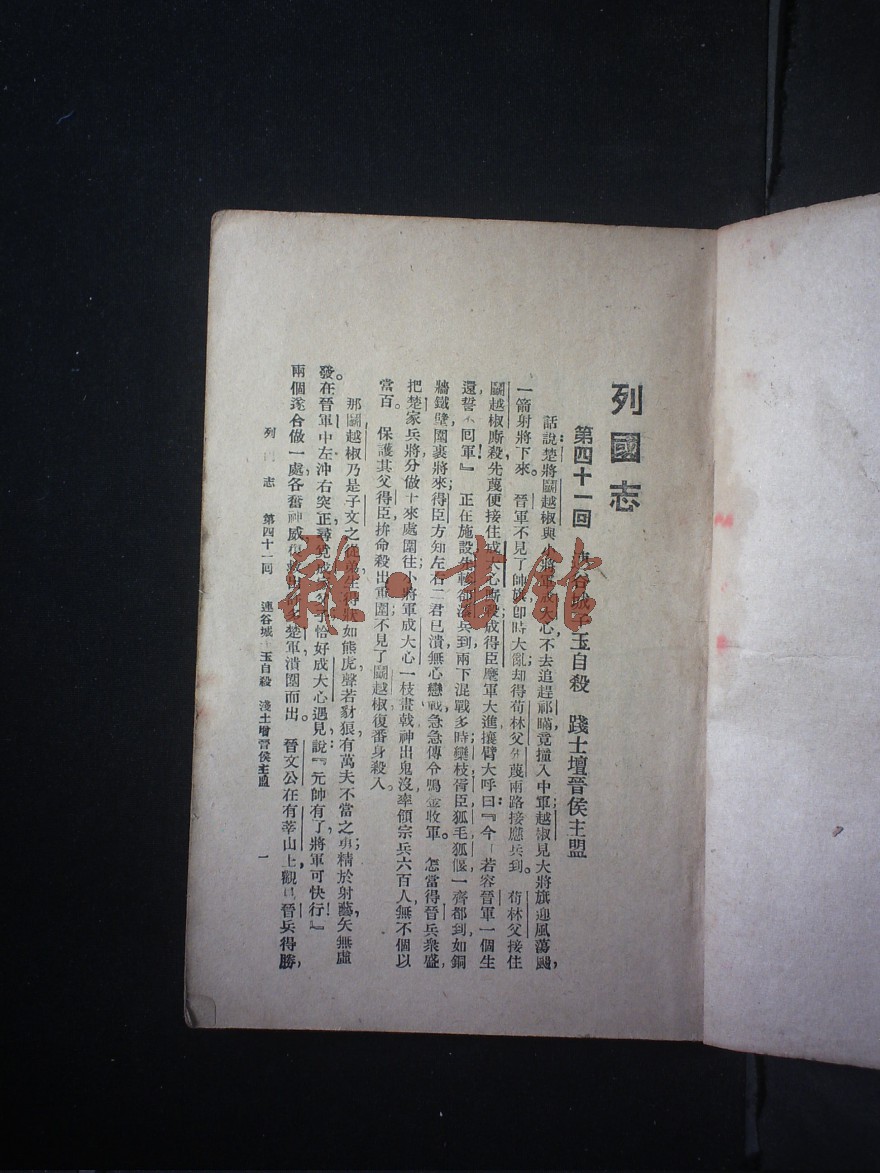 列國志
第四十一回 連谷城子玉自殺 踐土壇晉侯主盟
話說楚將鬬越椒與小將軍成大心不去追趕祁瞞竟撞入中軍越椒見大將旗迎風蕩颺,
一箭射將下來。晉軍不見了帥旗卽時大亂;却得荀林父先蔑兩路接應兵到。荀林父接住
鬬越椒廝殺先蔑便接住成大心廝殺成得臣麾軍大進攘臂大呼曰:『今日若容晉軍一個生
還,誓不回軍!』正在施設,兵到兩下混戰多時,欒枝胥臣狐毛狐偃一齊都到,如銅
牆鐵壁圍裹將來;得臣方知左右二軍已潰無心戀戰,急急傳令鳴金收軍。怎當得晉兵衆盛,
把楚家兵將分做十來處圍住,小將軍成大心一枝畫戟神出鬼沒,率領宗兵六百人,無不個以
當百。保護其父得臣拚命殺出重圍,不見了鬬越椒復番身殺入。
那鬬越椒乃是子文之從弟生得狀如熊虎,聲若豺狼,有萬夫不當之勇;精於射藝,矢無虛
發。在晉軍中左沖右突正尋覓成家父子恰好成大心遇見,說:『元帥有了將軍可快行!』
兩個遂合做一處,各奮神威復救出許多楚軍,潰圍而出。晉文公在有莘山上,觀見晉兵得勝,
列 志 第四十一回 連谷城 玉自殺 淺土增晉侯主盟 一
雜·書館